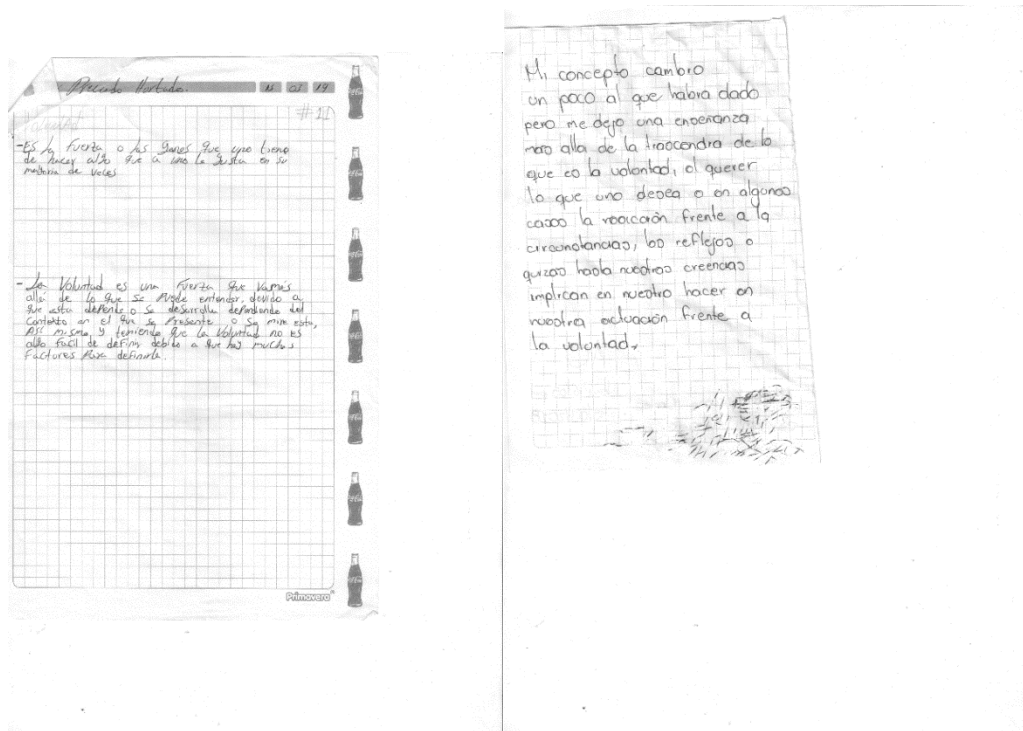 Hurtado.
#11
- Es la Fuerza o las ganes que uno tiene
de hacer algo que a uno le gusta en su
mayoria de veces
- La Voluntad es una Fuerza que va más
allá de lo que se puede entender, devido a
que esta depende o se desarrolla dependiendo del
contexto en el que se Presente o se mire esta,
Así mismo y teniendo que la Voluntad no es
algo facil de definir debido a que hay muchos
Factures para definirla.
Primavera
Mi concepto cambio
un poco al que habia dado
pero me dejo una enseñanza
mas alla de la trascendia de lo
que es la volontad, el querer
lo que uno desea o en algunos
casos la reacción frente a la
circunstancias, los reflejos o
quizas hasta nuestras creencias
implican en nuestro hacer en
nuestra actuación frente a
la volontad.